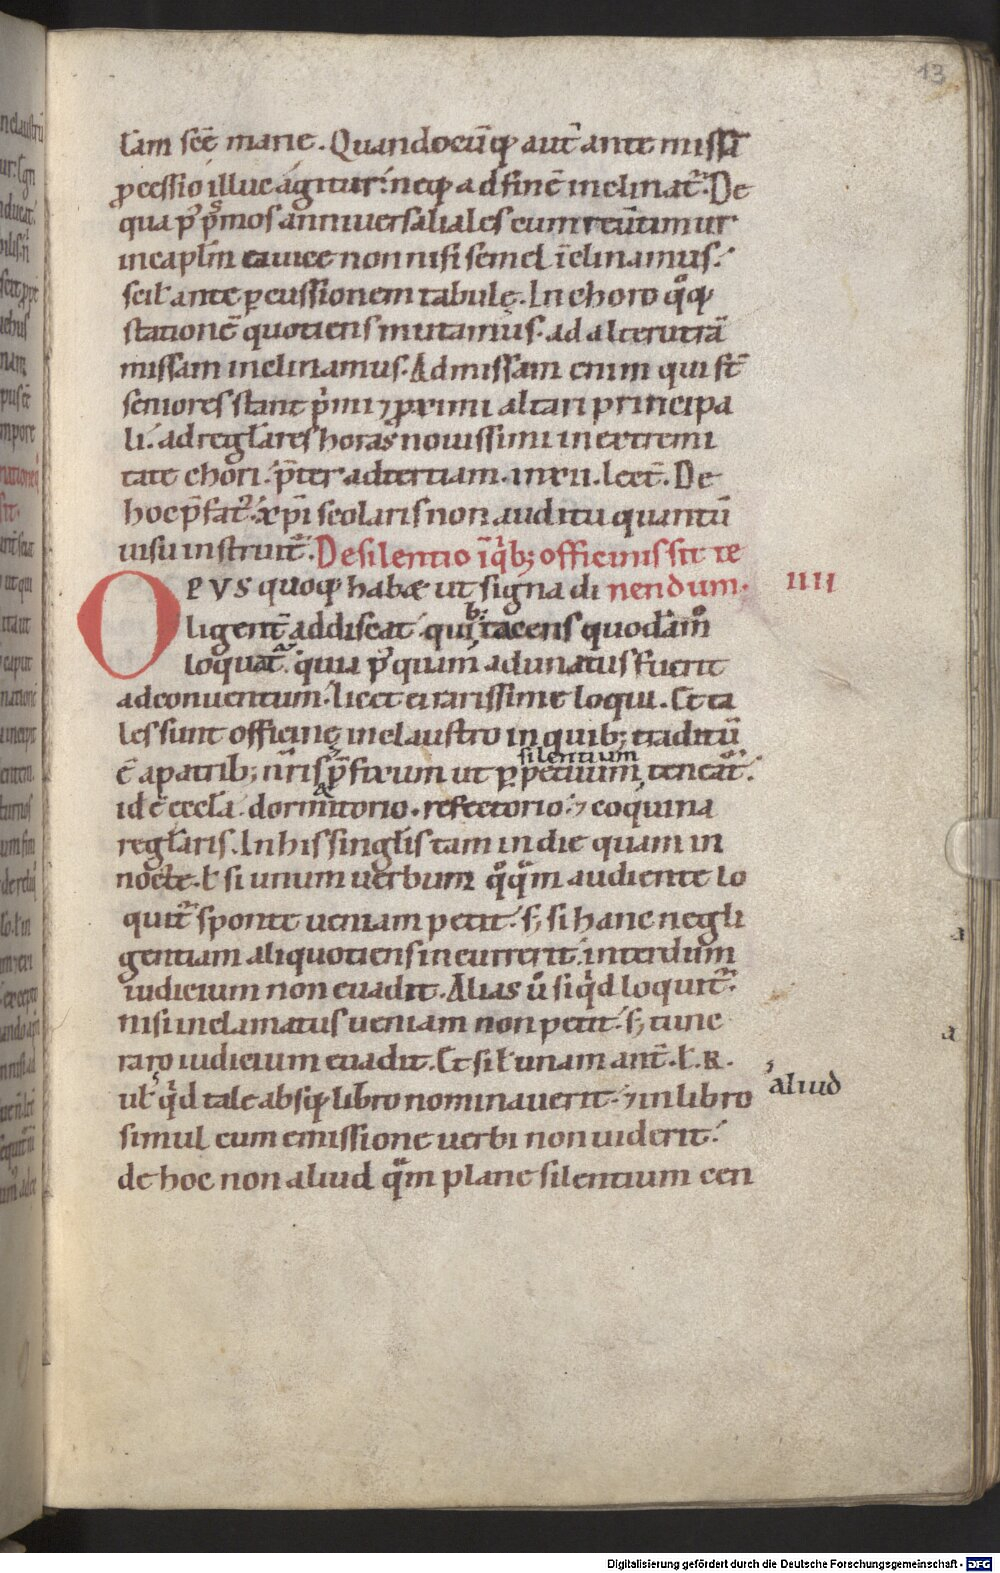 13
Cam scē marie. Quandocūq; aut̄ ante missā
ꝓcessio illuc agitur: neq; ad finē inclinat᷑. De
qua p᷒ pͥmos anniversaliales cum reūtimur
in caplm̄ cauice non nisi semel īclinamus.
scil̄ ante ꝑcussionem tabulę. In choro qͦq;
stationē quotiens mutamus. ad alterutrā
missam inclinamus. Ad missam enim qui st̄
seniores stant pͥmi ⁊ ꝓximi altari principa
li. ad regl̄ares horas novissimi in extremi
tate chori. p̄ter ad tertiam. in xii. lect̄. De
hoc p̄fat᷑. xp̄i scolaris non auditu quantū
uisu instruit᷑. De silentio ī qͥb; officinis sit te
OPVS quoq; habæ ut signa di nendum. IIII
ligent̄ addiscat quib; tacens quodāmͦ
loquat᷑. quia pͦquam adunatus fuerit
ad conventum. licet ei rarissime loqui. Et ta
les sunt officinę in claustro in quib; traditū
silentium
ē a patrib; nr̄is p̄fixum ut ꝑpetuum teneat᷑.
id ē eccl̄a. dormitorio. refectorio. ⁊ coquina
regl̄aris. In his singl̄is tam in die quam in
nocte. ł si unum uerbum qͦqͣm audiente lo
quit᷑ sponte ueniam petit. s; si hanc negli
gentiam aliquotiens incurrerit. interdum
iudicium non euadit. Alias ū siqͥd loquit᷑.
nisi inclamatus ueniam non petit. s; tunc
raro iudicium euadit. Et si ł unam ant̄. ł. R.
uł qͥd tale absq; libro nominaverit. ⁊ in libro
aliud
simul cum emissione uerbi non uiderit.
de hoc non aliud qͣm plane silentium cen
Digitalisierung gefördert durch die Deutsche Forschungsgemeinschaft - DFG